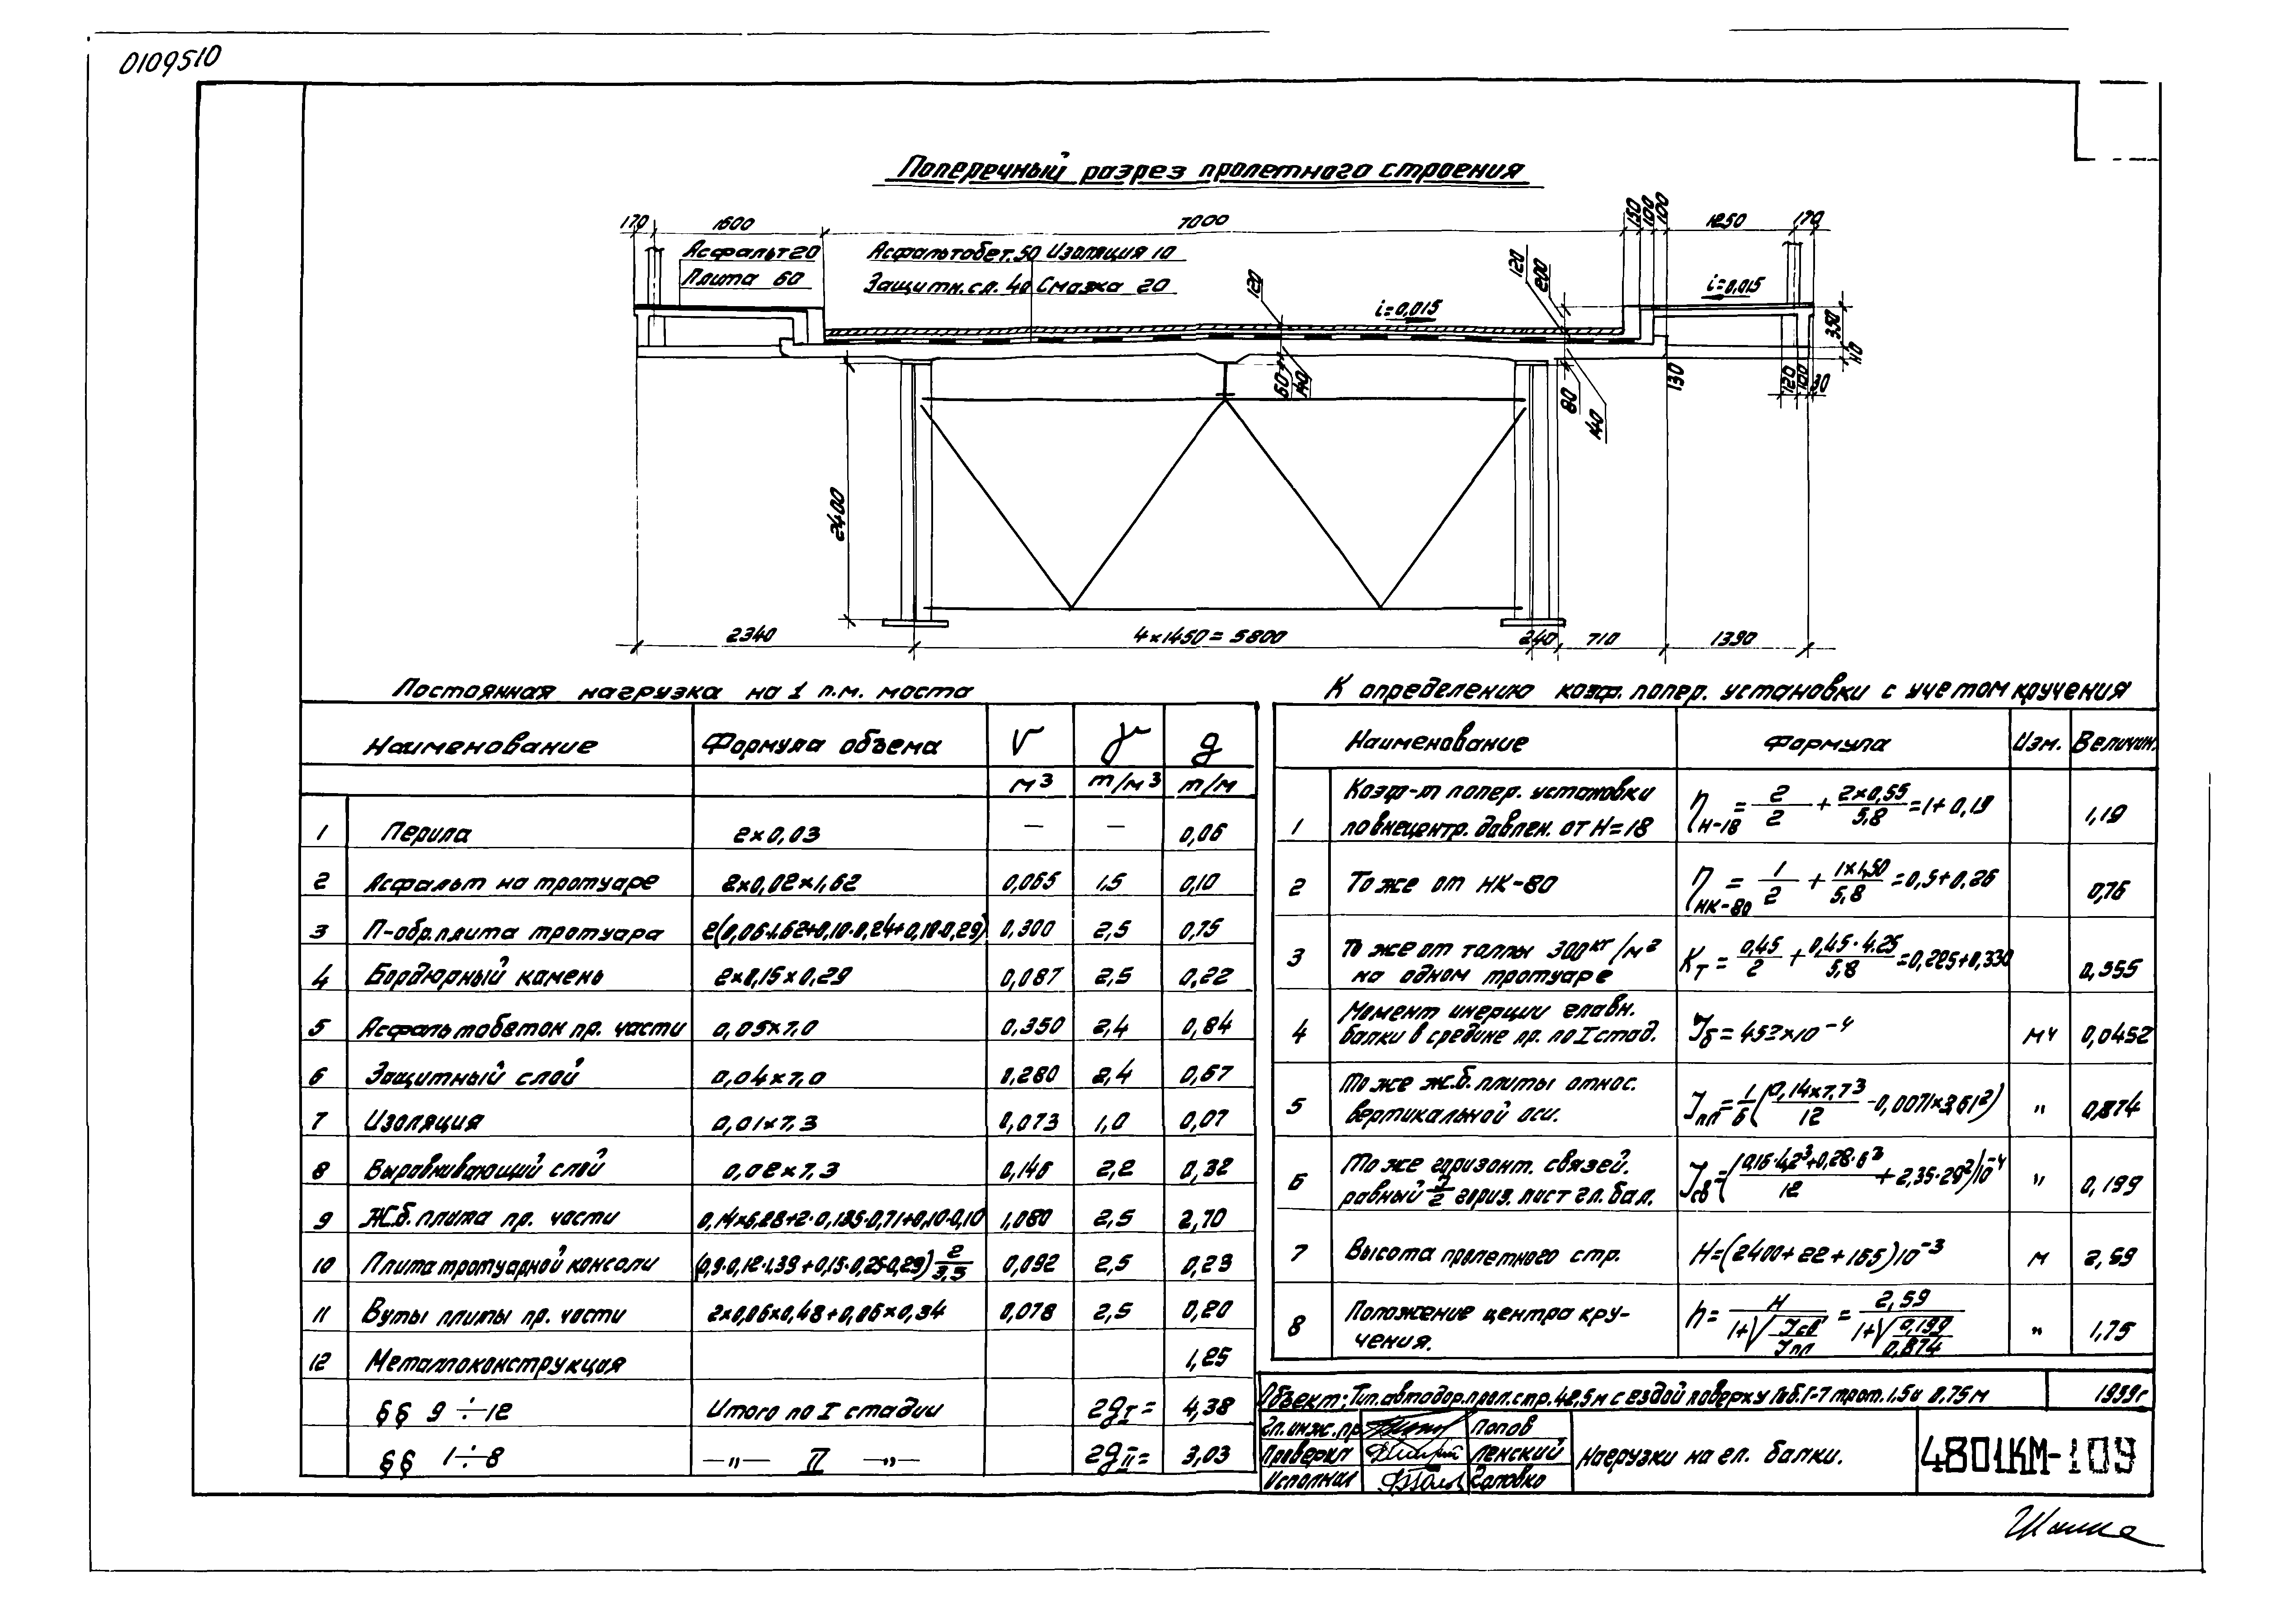 0109510
Поперечный разрез пролетного строения
170 1600 7000 150 100 100 1250 170
Асфальт 20 Асфальтобет. 50 Изоляция 10
Плита 60 Защитн. сл. 40 Смазка 20
120 120 200
i=0,015 i=0,015
350
60 140 80 140 130 120 100 30
2400
2340 4×1450=5800 240 710 1390
Постоянная нагрузка на 1 п.м. моста
Наименование Формула объема V γ g
м³ т/м³ т/м
1 Перила 2×0,03 — — 0,06
2 Асфальт на тротуаре 2×0,02×1,62 0,065 1,5 0,10
3 П-обр. плита тротуара 2(0,06·1.62+0,10·0,24+0,10·0,29) 0,300 2,5 0,75
4 Бордюрный камень 2×0,15×0,29 0,087 2,5 0,22
5 Асфальтобетон пр. части 0,05×7,0 0,350 2,4 0,84
6 Защитный слой 0,04×7,0 0,280 2,4 0,67
7 Изоляция 0,01×7,3 0,073 1,0 0,07
8 Выравнивающий слой 0,02×7,3 0,146 2,2 0,32
9 Ж.б. плита пр. части 0,14×6,28+2·0,135·0,71+0,10·0,10 1,080 2,5 2,70
10 Плита тротуарной консоли (0,9·0,12·1.39+0,15·0,25·0,29) 2/3,5 0,092 2,5 0,23
11 Вуты плиты пр. части 2×0,06×0,48+0,06×0,34 0,078 2,5 0,20
12 Металлоконструкция 1,25
§§ 9÷12 Итого по I стадии 2gI= 4,38
§§ 1÷8 —„— II —„— 2gII= 3,03
К определению коэф. попер. установки с учетом кручения
Наименование Формула Изм. Величин.
1 Коэф-т попер. установки
по внецентр. давлен. от Н=18 ηН-18 = 2/2 + 2×0,55/5,8 = 1+0,19 1,19
2 То же от НК-80 ηНК-80 = 1/2 + 1×1,50/5,8 = 0,5+0,26 0,76
3 То же от толпы 300 кг/м²
на одном тротуаре Kт = 0,45/2 + 0,45·4.25/5,8 = 0,225+0,330 0,555
4 Момент инерции главн.
балки в средине пр. по I стад. Jб = 452×10⁻⁴ м4 0,0452
5 То же ж.б. плиты относ.
вертикальной оси. Jпл = 1/6 (0,14×7,7³/12 - 0,0071×3,61²) „ 0,874
6 То же горизонт. связей.
равный J/2 гориз. лист гл. бал. Jсв = (0,16·42³+0,28·6³/12 + 2,35·29²)10⁻⁴ „ 0,199
7 Высота пролетного стр. H=(2400+22+165)10⁻³ м 2,59
8 Положение центра кру-
чения. h = H/1+√Jсв/Jпл = 2,59/1+√0,199/0,874 „ 1,75
Объект: Тип. автодор. прол. стр. 42,5 м с ездой поверху Габ. Г-7 трот. 1.5 и 0.75 м 1959г
Гл. инж. пр. Попов
Проверил Ленский
Исполнил Головко
Нагрузки на гл. балки.
4801КМ-109